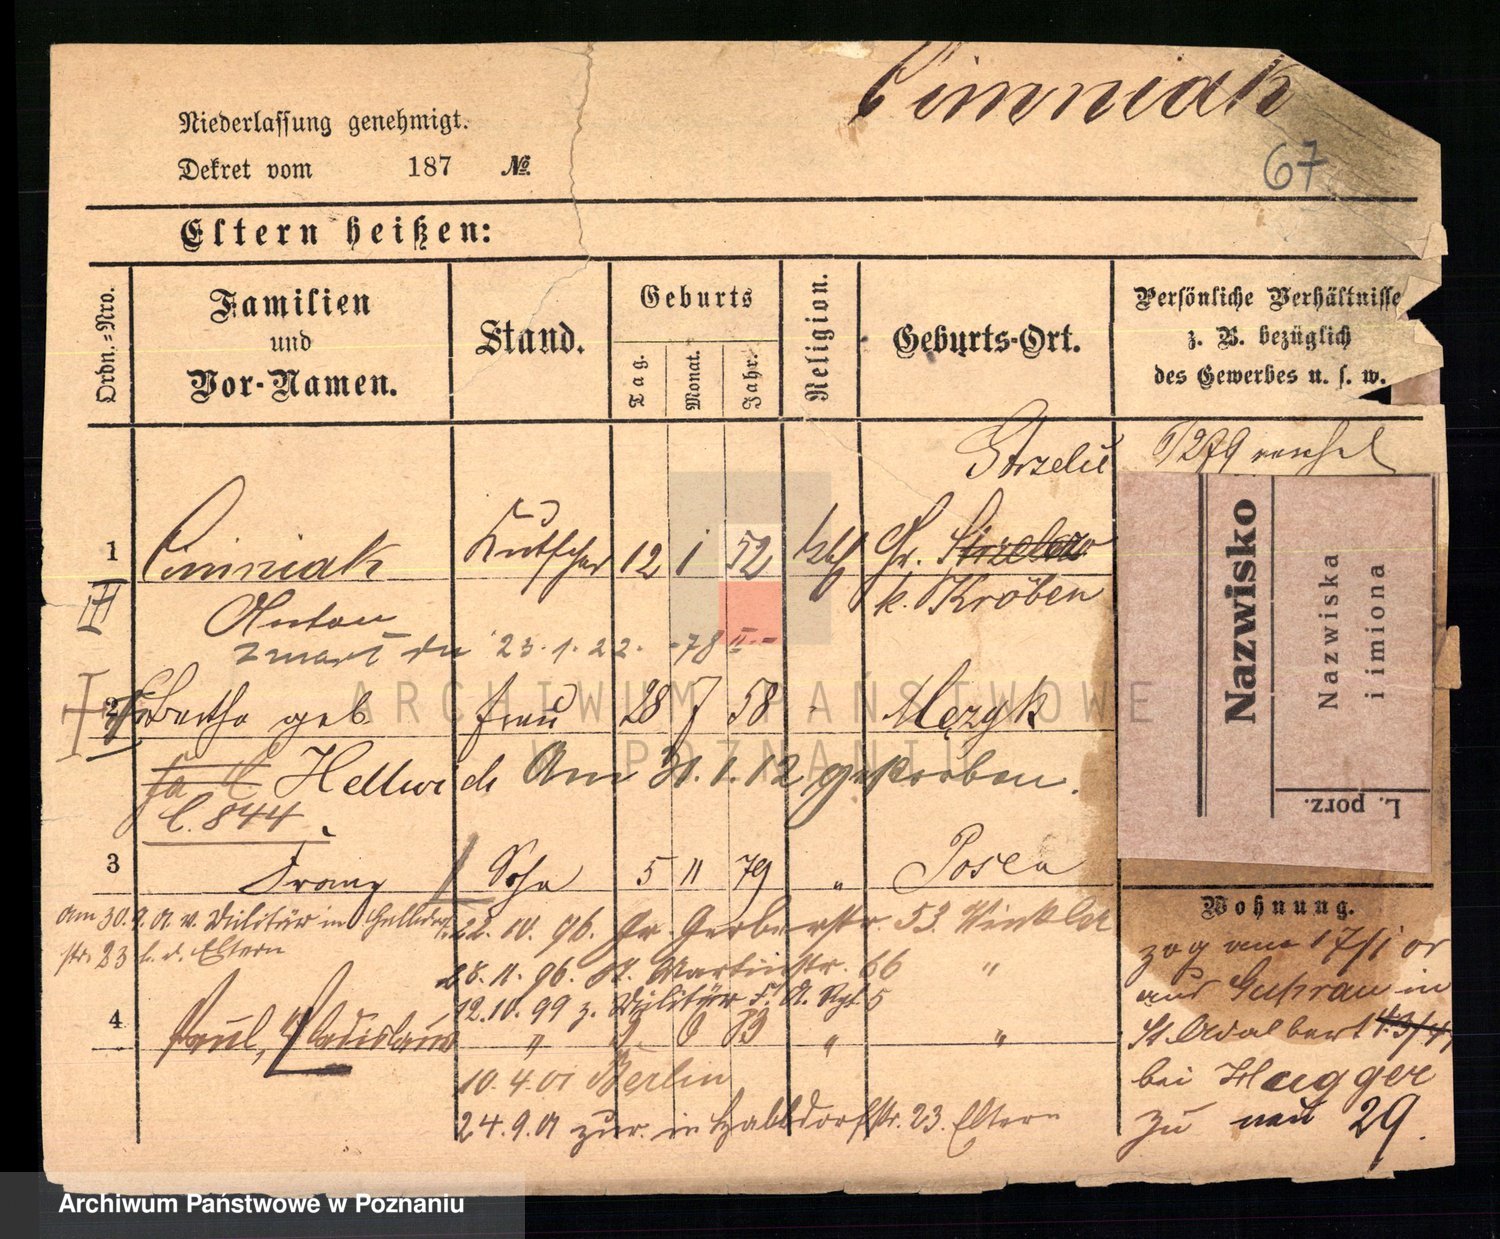 Cimniak
67
Niederlassung genehmigt.
Dekret vom 187 №
Eltern heißen:
Ordn.-Nro.
Familien und Vor-Namen.
Stand.
Geburts
Tag. Monat. Jahr.
Religion.
Geburts-Ort.
Persönliche Verhältnisse
z. B. bezüglich
des Gewerbes u. s. w.
Strzelce
1 Cimniak Kutscher 12 1 52 kath Gr. Strzelce
Anton k. Kröben
zmarł dn 23.1.22. -78
2 Bertha geb. Frau 28 7 58 Mczyk
Hellwich Am 31.1.12 gestorben.
l. 844
3 Franz Sohn 5 11 79 " Posen
Am 30.9. 01 v. Militär in
str. 23 b. d. Eltern
22.10.96. Gr. Gerberstr. 53. Winkler
28.11.96. St. Martinstr. 66 "
12.10.99 z. Militär F. A. Rgt 5
4 Paul, Ladislaus " 9 6 83 " "
10.4.01 Berlin
24.9.01 zur. in str. 23. Eltern
Nazwisko
Nazwiska
i imiona
L. porz.
Wohnung.
zog am 17/1 cr
aus Guhrau in
St Adalbert 43/4
bei Hugger
zu neu 29.
ARCHIWUM PAŃSTWOWE
W POZNANIU
Archiwum Państwowe w Poznaniu